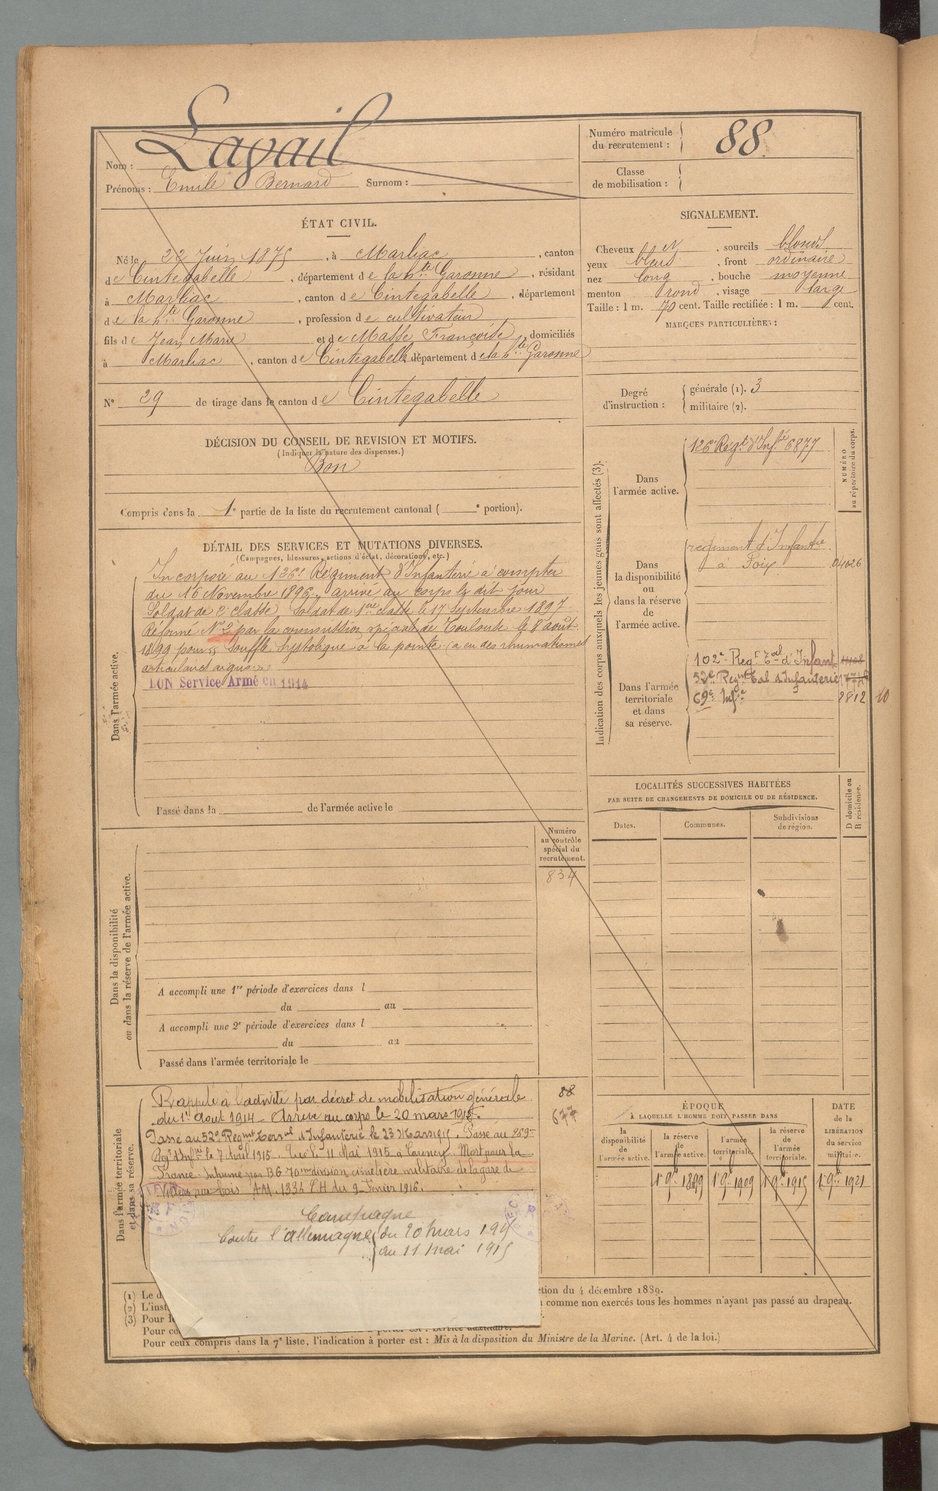 Nom : Lavail
Prénoms : Emile Bernard Surnom :
Numéro matricule du recrutement : 88
Classe de mobilisation :
ÉTAT CIVIL.
Né le 22 Juin 1875, à Marliac, canton
de Cintegabelle, département de la hte Garonne, résidant
à Marliac, canton de Cintegabelle, département
de la hte Garonne, profession de cultivateur
fils de Jean Marie et de Masse Françoise, domiciliés
à Marliac, canton de Cintegabelle département de la hte Garonne
N° 29 de tirage dans le canton de Cintegabelle
SIGNALEMENT.
Cheveux et, sourcils blonds
yeux bleus, front ordinaire
nez long, bouche moyenne
menton rond, visage large
Taille : 1 m. 70 cent. Taille rectifiée : 1 m. cent.
MARQUES PARTICULIÈRES :
Degré d'instruction : générale (1). 3
militaire (2).
DÉCISION DU CONSEIL DE REVISION ET MOTIFS.
(Indiquer la nature des dispenses.)
Bon
Compris dans la 1e partie de la liste du recrutement cantonal ( e portion).
DÉTAIL DES SERVICES ET MUTATIONS DIVERSES.
(Campagnes, blessures, actions d'éclat, décorations, etc.)
Dans l'armée active.
Incorporé au 126e Régiment d'Infanterie à compter
du 16 Novembre 1896, arrivé au corps le dit jour
Soldat de 2e classe Soldat de 1ère classe le 17 Septembre 1897
Réformé N° 2 par la commission spéciale de Toulouse le 8 août
1899 pour souffle systolique à la pointe a eu des rhumatismes
articulaires aigus
BON Service Armé en 1914
Passé dans la de l'armée active le
Indication des corps auxquels les jeunes gens sont affectés (3).
NUMÉRO au répertoire du corps.
Dans l'armée active.
126e Regt d'Infie 6877
Dans la disponibilité ou dans la réserve de l'armée active.
régiment d'Infanterie
à Foix 04626
Dans l'armée territoriale et dans sa réserve.
102e Regt Tal d'Infant
32e Regmt Tal d'Infanterie
69e Infie 2812 10
LOCALITÉS SUCCESSIVES HABITÉES
PAR SUITE DE CHANGEMENTS DE DOMICILE OU DE RÉSIDENCE.
Dates. Communes. Subdivisions de région. D domicile ou R résidence.
Numéro au contrôle spécial du recrutement.
834
Dans la disponibilité ou dans la réserve de l'armée active.
A accompli une 1re période d'exercices dans l
du au
A accompli une 2e période d'exercices dans l
du au
Passé dans l'armée territoriale le
Dans l'armée territoriale et dans sa réserve.
Rappelé à l'activité par décret de mobilisation générale 88
du 1er août 1914 Arrivé au corps le 20 mars 1915
Passé au 32e Regmt Terr al d'Infanterie le 23 Mars 1915. Passé au 269e
Regt d'Infie le 7 Avril 1915 Tué le 11 Mai 1915 à Carency Mort pour la
France Inhumé par B.G. 70me division cimetière militaire de la gare de
Villers aux bois A.M. 1334 P.H du 9 Février 1916.
Campagne
Contre l'Allemagne du 20 mars 1915
au 11 mai 1915
ÉPOQUE
À LAQUELLE L'HOMME DOIT PASSER DANS
la disponibilité de l'armée active. la réserve de l'armée active. l'armée territoriale. la réserve de l'armée territoriale.
DATE de la LIBÉRATION du service militaire.
1er 9re 1899 1er 9re 1909 1er 9re 1915 1er 9re 1921
(1) Le d
ction du 4 décembre 1889.
(2) L'inst
comme non exercés tous les hommes n'ayant pas passé au drapeau.
(3) Pour
Pour co
Pour ceux compris dans la 7e liste, l'indication à porter est : Mis à la disposition du Ministre de la Marine. (Art. 4 de la loi.)